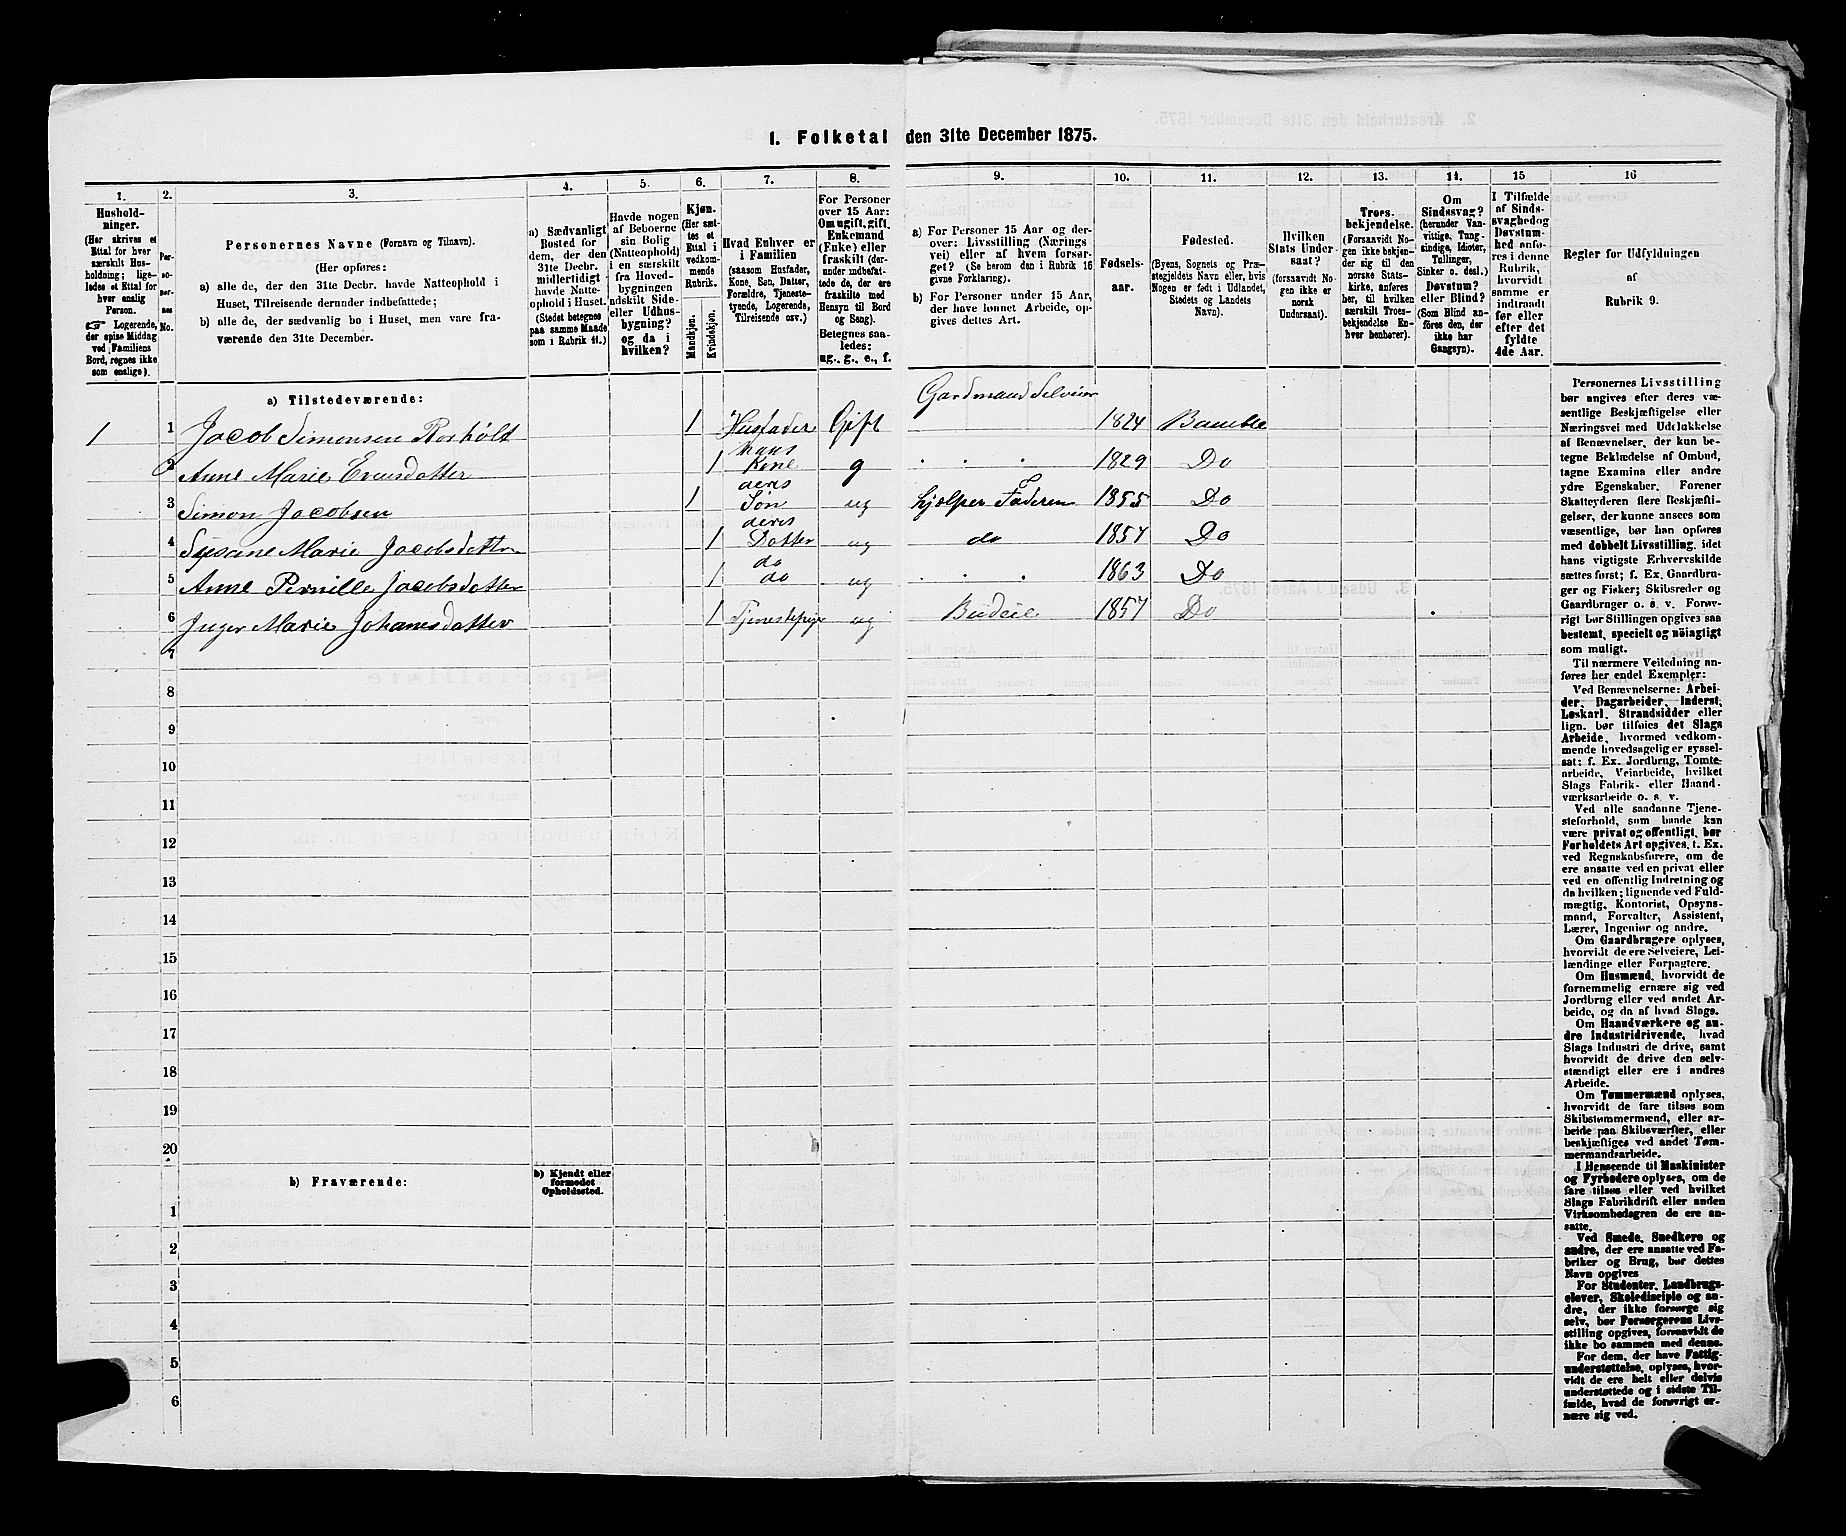 1. Folketal den 31te December 1875.
1.
Hushold-
ninger.
(Her skrives et
Ettal for hver
særskilt Hus-
holdning; lige-
ledes et Ettal for
hver enslig
Person.
☞ Logerende,
der spise Middag
ved Familiens
Bord, regnes ikke
som enslige).
2.
Per-
so-
ner-
nes
No.
3.
Personernes Navne (Fornavn og Tilnavn).
(Her opføres:
a) alle de, der den 31te Decbr. havde Natteophold i
Huset, Tilreisende derunder indbefattede;
b) alle de, der sædvanlig bo i Huset, men vare fra-
værende den 31te December.
4.
a) Sædvanligt
Bosted for
dem, der den
31te Decbr.
midlertidigt
havde Natte-
ophold i Huset.
(Stedet betegnes
paa samme Maade
som i Rubrik 11.)
5.
Havde nogen
af Beboerne
sin Bolig
(Natteophold)
i en særskilt
fra Hoved-
bygningen
adskilt Side-
eller Udhus-
bygning?
og da i
hvilken?
6.
Kjøn.
(Her sæt-
tes et
Ettal i
vedkom-
mende
Rubrik.
Mandkjøn.
Kvindekjøn.
7.
Hvad Enhver er
i Familien
(saasom Husfader,
Kone, Søn, Datter,
Forældre, Tjeneste-
tyende, Logerende,
Tilreisende osv.)
8.
For Personer
over 15 Aar:
Om ugift, gift,
Enkemand
(Enke) eller
fraskilt (der-
under indbefat-
tede de, der ere
fraskilte med
Hensyn til Bord
og Seng).
Betegnes saa-
ledes:
ug., g., e., f.
9.
a) For Personer 15 Aar og der-
over: Livsstilling (Nærings
vei) eller af hvem forsør-
get? (Se herom den i Rubrik 16
givne Forklaring).
b) For Personer under 15 Aar,
der have lønnet Arbeide, op-
gives dettes Art.
10.
Fødsels-
aar.
11.
Fødested.
(Byens, Sognets og Præ-
stegjeldets Navn eller, hvis
Nogen er født i Udlandet,
Stedets og Landets
Navn).
12.
Hvilken
Stats Under-
saat?
(forsaavidt No-
gen ikke er
norsk
Undersaat).
13.
Troes-
bekjendelse.
(Forsaavidt No-
gen ikke bekjen-
der sig til den
norske Stats-
kirke, anføres
her, til hvilken
særskilt Troes-
bekjendelse En-
hver henhører).
14.
Om
Sindssvag?
(herunder Van-
vittige, Tung-
sindige, Idioter,
Tullinger,
Sinker o. desl.)
Døvstum?
eller Blind?
(Som Blind an-
føres den, der
ikke har
Gangsyn).
15
I Tilfælde
af Sinds-
svaghed og
Døvstum-
hed anfø-
res i denne
Rubrik,
hvorvidt
samme er
indtraadt
før eller
efter det
fyldte
4de Aar.
16
Regler for Udfyldningen
af
Rubrik 9.
a) Tilstedeværende:
1 1 Jacob Simonsen Rorholt 1 Husfader Gift Gardmand Selveier 1824 Bamble
2 Anne Marie Evensdatter 1 hans Kone g 1829 Do
3 Simon Jacobsen 1 deres Søn ug hjelper Faderen 1855 Do
4 Susane Marie Jacobsdatter 1 deres Datter ug do 1857 Do
5 Anne Pernille Jacobsdatter 1 do do ug 1863 Do
6 Inger Marie Johanesdatter 1 Tjenestepige ug Budeie 1857 Do
7
8
9
10
11
12
13
14
15
16
17
18
19
20
b) Fraværende:
b) Kjendt eller
formodet
Opholdssted.
1
2
3
4
5
6
Personernes Livsstilling
bør angives efter deres væ-
sentlige Beskjæftigelse eller
Næringsvei med Udelukkelse
af Benævnelser, der kun be-
tegne Beklædelse af Ombud,
tagne Examina eller andre
ydre Egenskaber. Forener
Skatteyderen flere Beskjæfti-
gelser, der kunne ansees som
væsentlige, bør han opføres
med dobbelt Livsstilling, idet
hans vigtigste Erhvervskilde
sættes først; f. Ex. Gaardbru-
ger og Fisker; Skibsreder og
Gaardbruger o. s. v. Forøv-
rigt bør Stillingen opgives saa
bestemt, specielt og nöiagtigt
som muligt.
Til nærmere Veiledning an-
føres her endel Exempler:
Ved Benævnelserne: Arbei-
der, Dagarbeider, Inderst,
Løskarl, Strandsidder eller
lign. bør tilføies det Slags
Arbeide, hvormed vedkom-
mende hovedsagelig er syssel-
sat: f. Ex. Jordbrug, Tomte-
arbeide, Veiarbeide, hvilket
Slags Fabrik- eller Haand-
værksarbeide o. s. v.
Ved alle saadanne Tjene-
steforhold, som baade kan
være privat og offentligt, bør
Forholdets Art opgives, f. Ex.
ved Regnskabsførere, om de
ere ansatte ved en privat eller
ved en offentlig Indretning og
da hvilken; lignende ved Fuld-
mægtig, Kontorist, Opsyns-
mand, Forvalter, Assistent,
Lærer, Ingeniør og andre.
Om Gaardbrugere oplyses,
hvorvidt de ere Selveiere, Lei-
lændinge eller Forpagtere.
Om Husmænd, hvorvidt de
fornemmelig ernære sig ved
Jordbrug eller ved andet Ar-
beide, og da af hvad Slags.
Om Haandværkere og an-
dre Industridrivende, hvad
Slags Industri de drive, samt
hvorvidt de drive den selv-
stændigt eller ere i andres
Arbeide.
Om Tømmermænd oplyses,
hvorvidt de fare tilsøs som
Skibstømmermænd, eller ar-
beide paa Skibsværfter, eller
beskjæftiges ved andet Tøm-
mermandsarbeide.
I Henseende til Maskinister
og Fyrbødere oplyses, om de
fare tilsøs eller ved hvilket
Slags Fabrikdrift eller anden
Virksomhedsgren de ere an-
satte.
Ved Smede, Snedkere og
andre, der ere ansatte ved Fa-
briker og Brug, bør dettes
Navn opgives
For Studenter, Landbrugs-
elever, Skoledisciple og an-
dre, der ikke forsørge sig
selv, bør Forsørgerens Livs-
stilling opgives, forsaavidt de
ikke bo sammen med denne.
For dem, der have Fattig-
understøttelse, oplyses, hvor-
vidt de ere helt eller delvis
understøttede og i sidste Til-
fælde, hvad de forøvrigt er-
nære sig ved.